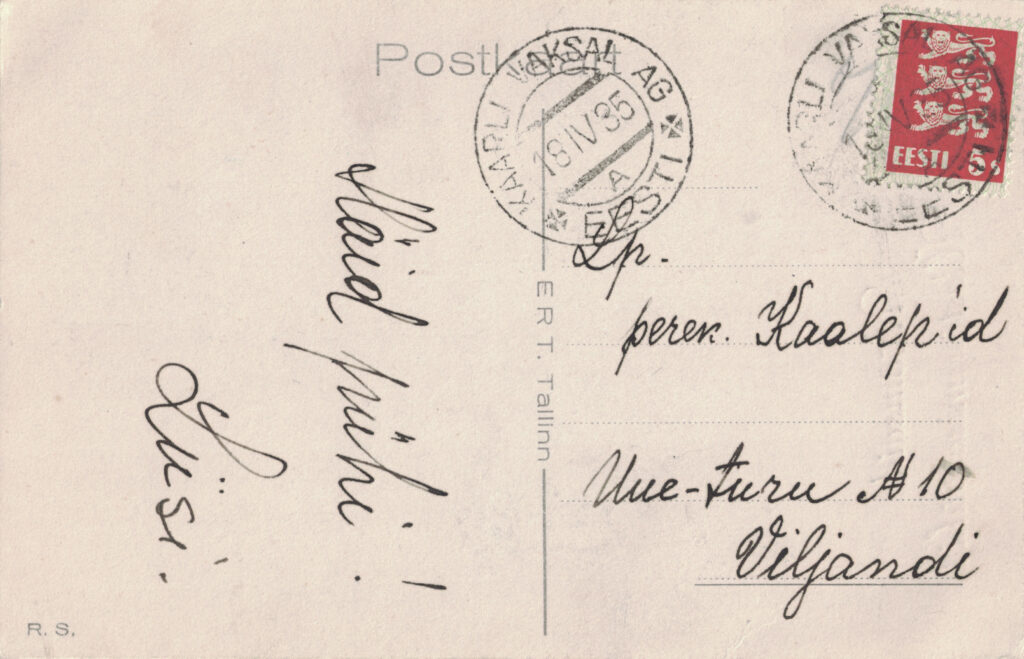 Postkaart
KAARLI VAKSAL AG
18 IV 35
A
EESTI
KAARLI VAKSAL AG
18 IV 35
EESTI
EESTI 5 s
Häid pühi!
Lüsi.
E R T. Tallinn
Lp.
perek. Kaalep'id
Uue-turu № 10
Viljandi
R. S,